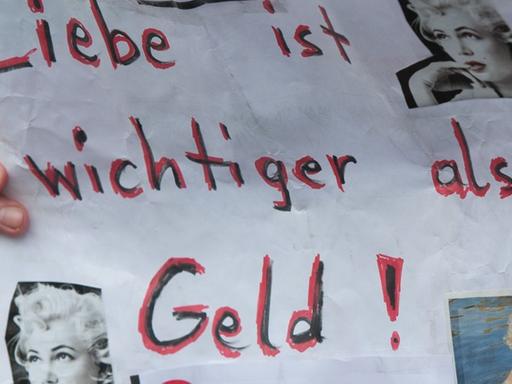 Liebe ist
wichtiger als
Geld!